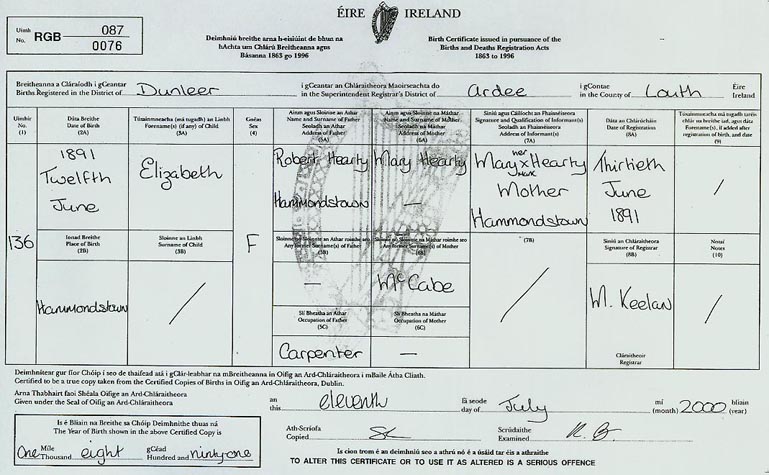 ÉIRE IRELAND
Uimh No. RGB 087
0076
Deimhniú breithe arna h-eisiúint de bhun na hAchta um Chlárú Breitheanna agus Básanna 1863 go 1996
Birth Certificate issued in pursuance of the Births and Deaths Registration Acts 1863 to 1996
Breitheanna a Cláraíodh i gCeantar
Births Registered in the District of Dunleer
i gCeantar an Chláraitheora Maoirseachta do
in the Superintendent Registrar's District of Ardee
i gContae
in the County of Louth
Éire
Ireland
Uimhir
No.
(1)
Dáta Breithe
Date of Birth
(2A)
Túsainmneacha (má tugadh) an Linbh
Forename(s) (if any) of Child
(3A)
Gnéas
Sex
(4)
Ainm agus Sloinne an Athar
Name and Surname of Father
Seoladh an Athar
Address of Father
(5A)
Ainm agus Sloinne na Máthar
Name and Surname of Mother
Seoladh na Máthar
Address of Mother
(6A)
Síniú agus Cáilíocht an Fhaisnéiseora
Signature and Qualification of Informant(s)
Seoladh an Fhaisnéiseora
Address of Informant(s)
(7A)
Dáta an Chlárúcháin
Date of Registration
(8A)
Túsainmneacha má tugadh taréis
chlárú na breithe iad, agus dáta
Forename(s), if added after
registration of birth, and date
(9)
136
1891
Twelfth
June
Elizabeth
F
Robert Hearty
Hammondstown
Mary Hearty
—
Mary x Hearty
her
mark
Mother
Hammondstown
Thirtieth
June
1891
/
Ionad Breithe
Place of Birth
(2B)
Sloinne an Linbh
Surname of Child
(3B)
Any former Surname(s) of Father
(5B)
Any former Surname(s) of Mother
(6B)
(7B)
Síniú an Chláraitheora
Signature of Registrar
(8B)
Nótaí
Notes
(10)
Hammondstown
/
—
McCabe
/
M. Keelan
/
Slí Bheatha an Athar
Occupation of Father
(5C)
Slí Bheatha na Máthar
Occupation of Mother
(6C)
Carpenter
—
Cláraitheoir
Registrar
Deimhnítear gur fíor Chóip í seo de thaifead atá i gClár-leabhar na mBreitheanna in Oifig an Ard-Chláraitheora, i mBaile Átha Cliath.
Certified to be a true copy taken from the Certified Copies of Births in Oifig an Ard-Chláraitheora, Dublin.
Arna Thabhairt faoi Shéala Oifige an Ard-Chláraitheora
Given under the Seal of Oifig an Ard-Chláraitheora
an
this eleventh
lá seode
day of July
mí
(month) 2000
bliain
(year)
Is é Bliain na Breithe sa Chóip Deimhnithe thuas ná
The Year of Birth shown in the above Certified Copy is
One Míle
Thousand eight gCéad
Hundred and ninety one
Ath-Scríofa
Copied
Scrúdaithe
Examined
Is cion trom é an deimhniú seo a athrú nó é a úsáid tar éis a athraithe
TO ALTER THIS CERTIFICATE OR TO USE IT AS ALTERED IS A SERIOUS OFFENCE